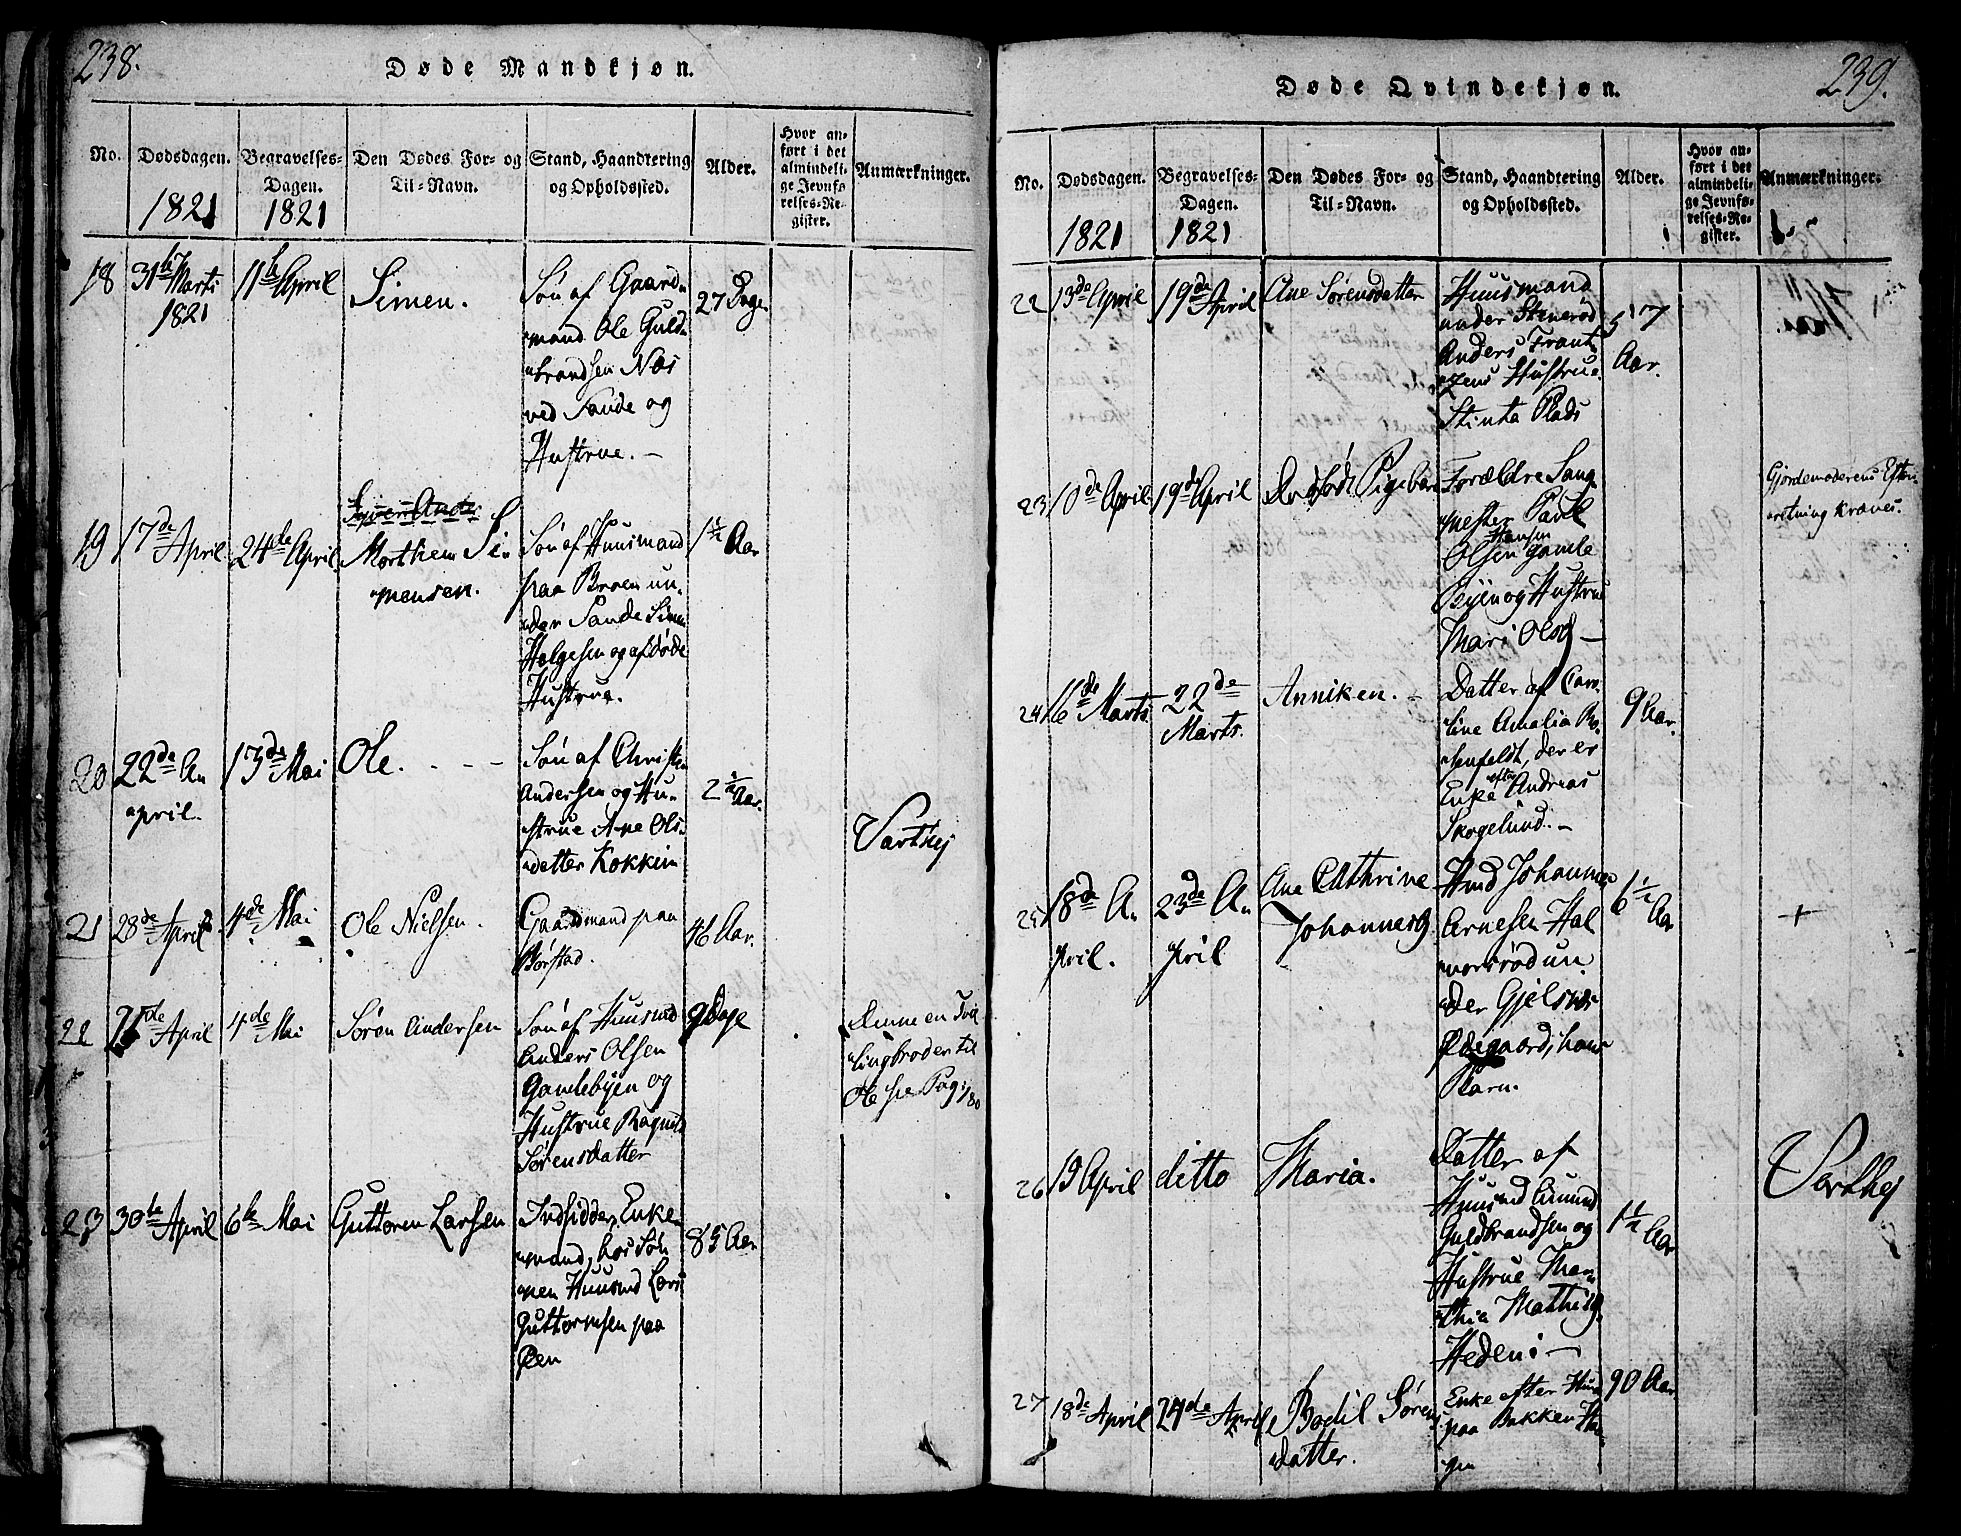 238.
Døde Mandkjøn.
No. Dødsdagen. Begravelses-Dagen. Den Dødes For- og Til-Navn. Stand, Haandtering og Opholdssted. Alder. Hvor anført i det almindelige Jevnførelses-Register. Anmærkninger.
1821 1821
18 31te Marts 1821 11te April Simen. Søn af Gaardmand Ole Guldbrandsen Næs ved Sande og Hustrue. 27 Dage
19 17de April 24de April Morthen Simensen. Søn af Huusmand paa Broen under Sande Simen Helgesen og afdøde Hustrue. 1½ Aar
20 22de April 13de Mai Ole. Søn af Christen Andersen og Hustrue Ane Olsdatter Kokkim 2½ Aar. Varthej
21 28de April 4de Mai Ole Nielsen. Gaardmand paa Børstad. 46 Aar.
22 25de April 4de Mai Søren Andersen Søn af Huusmd Anders Olsen Gamlebyen og Hustrue Ragnild Sørensdatter 9 Dage Denne en Tvillingbroder til Ole se Pag: 180
23 30te April 6te Mai Guttorm Larsen Indsidder, Enkemand, hos Sønnen Huusmd Lars Guttormsen paa Øen 85 Aar
239.
Døde Qvindekjøn.
No. Dødsdagen. Begravelses-Dagen. Den Dødes For- og Til-Navn. Stand, Haandtering og Opholdssted. Alder. Hvor anført i det almindelige Jevnførelses-Register. Anmærkninger.
1821 1821
22 13de April 19de April Ane Sørensdatter Huusmand under Stenerød Anders Frantzens Hustrue. Stinta Plads 57 Aar.
23 10de April 19de April Dødfødt Pigebarn Forældre Hansen Olsen gamle Byen og Hustrue Mari Olsd Gjordemoderens Efterretning kræves.
24 16de Marts 22de Marts. Anniken. Datter af Caroline Amalia der er Enke efter Andreas Skogelund. 9 Aar.
25 18de April. 23de April Ane Cathrine Johannesd Hmd Johannes Arnesen Halvorsrød under Gjelsnes Ødegaard, hans Barn. 6½ Aar +
26 19 April ditto Maria. Datter af Huusmd Amund Guldbrandsen og Hustrue Marthia Mathisd. Heden: 1½ Aar Varthej
27 18de April 24de April Bodil Sørensdatter. Enke efter paa Bakken 90 Aar